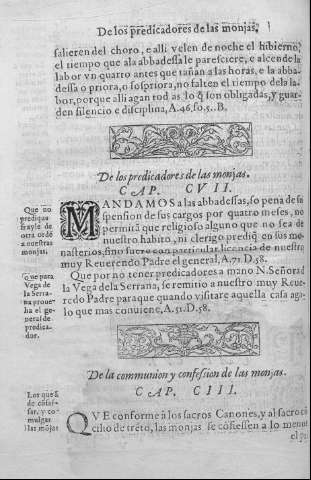 De los predicadores de las monjas.
salieren del choro, e alli velen de noche el hibierno,
el tiempo que ala abbadessa le paresciere, e alcen de la
labor vn quarto antes que tañan a las horas, e la abba-
dessa o priora, o sospriora, no falten el tiempo dela la-
bor, porque alli agan todas lo q̃ son obligadas, y guar-
den silencio e disciplina, A.46.fo.5..B.
De los predicadores de las monjas.
CAP. CVII.
Que no
prediquẽ
frayle de
otra ordẽ
a nuestras
monjas.
MANDAMOS a las abbadessas, so pena de su
spension de sus cargos por quatro meses, no
permitã que religioso alguno que no sea de
nuestro habito, ni clerigo prediq̃ en sus mo-
nasterios, sino fuere con particular licencia de nuestro
muy Reuerendo Padre el general, A.71.D.58.
So que para
Vega de
la Serra-
na prouea
ha el ge-
neral de
predica-
dor.
Que por no tener predicadores a mano N. Señora d̃
la Vega dela Serrana, se remitio a nuestro muy Reue-
redo Padre paraque quando visitare aquella casa aga
lo que mas conuiene, A.51.D.58.
De la communion y confession de las monjas.
CAP. CIII.
Los que
de cõfes-
sar, y co-
mulgar
las mõjas
QVE conforme à los sacros Canones, y al sacro cõ
cilio de trẽto, las monjas se cõfiessen a lo menos